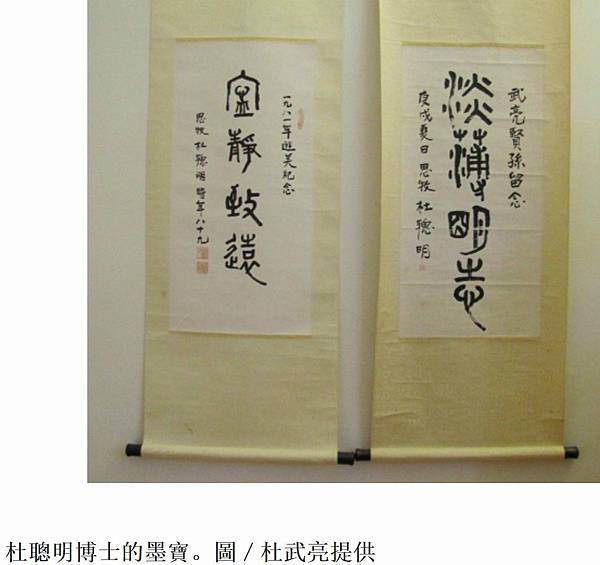 武亮賢孫留念
淡薄明志
庚戌夏日 思牧 杜聰明
一九八一年遊美紀念
寧靜致遠
思牧 杜聰明 時年八十九
杜聰明博士的墨寶。圖／杜武亮提供